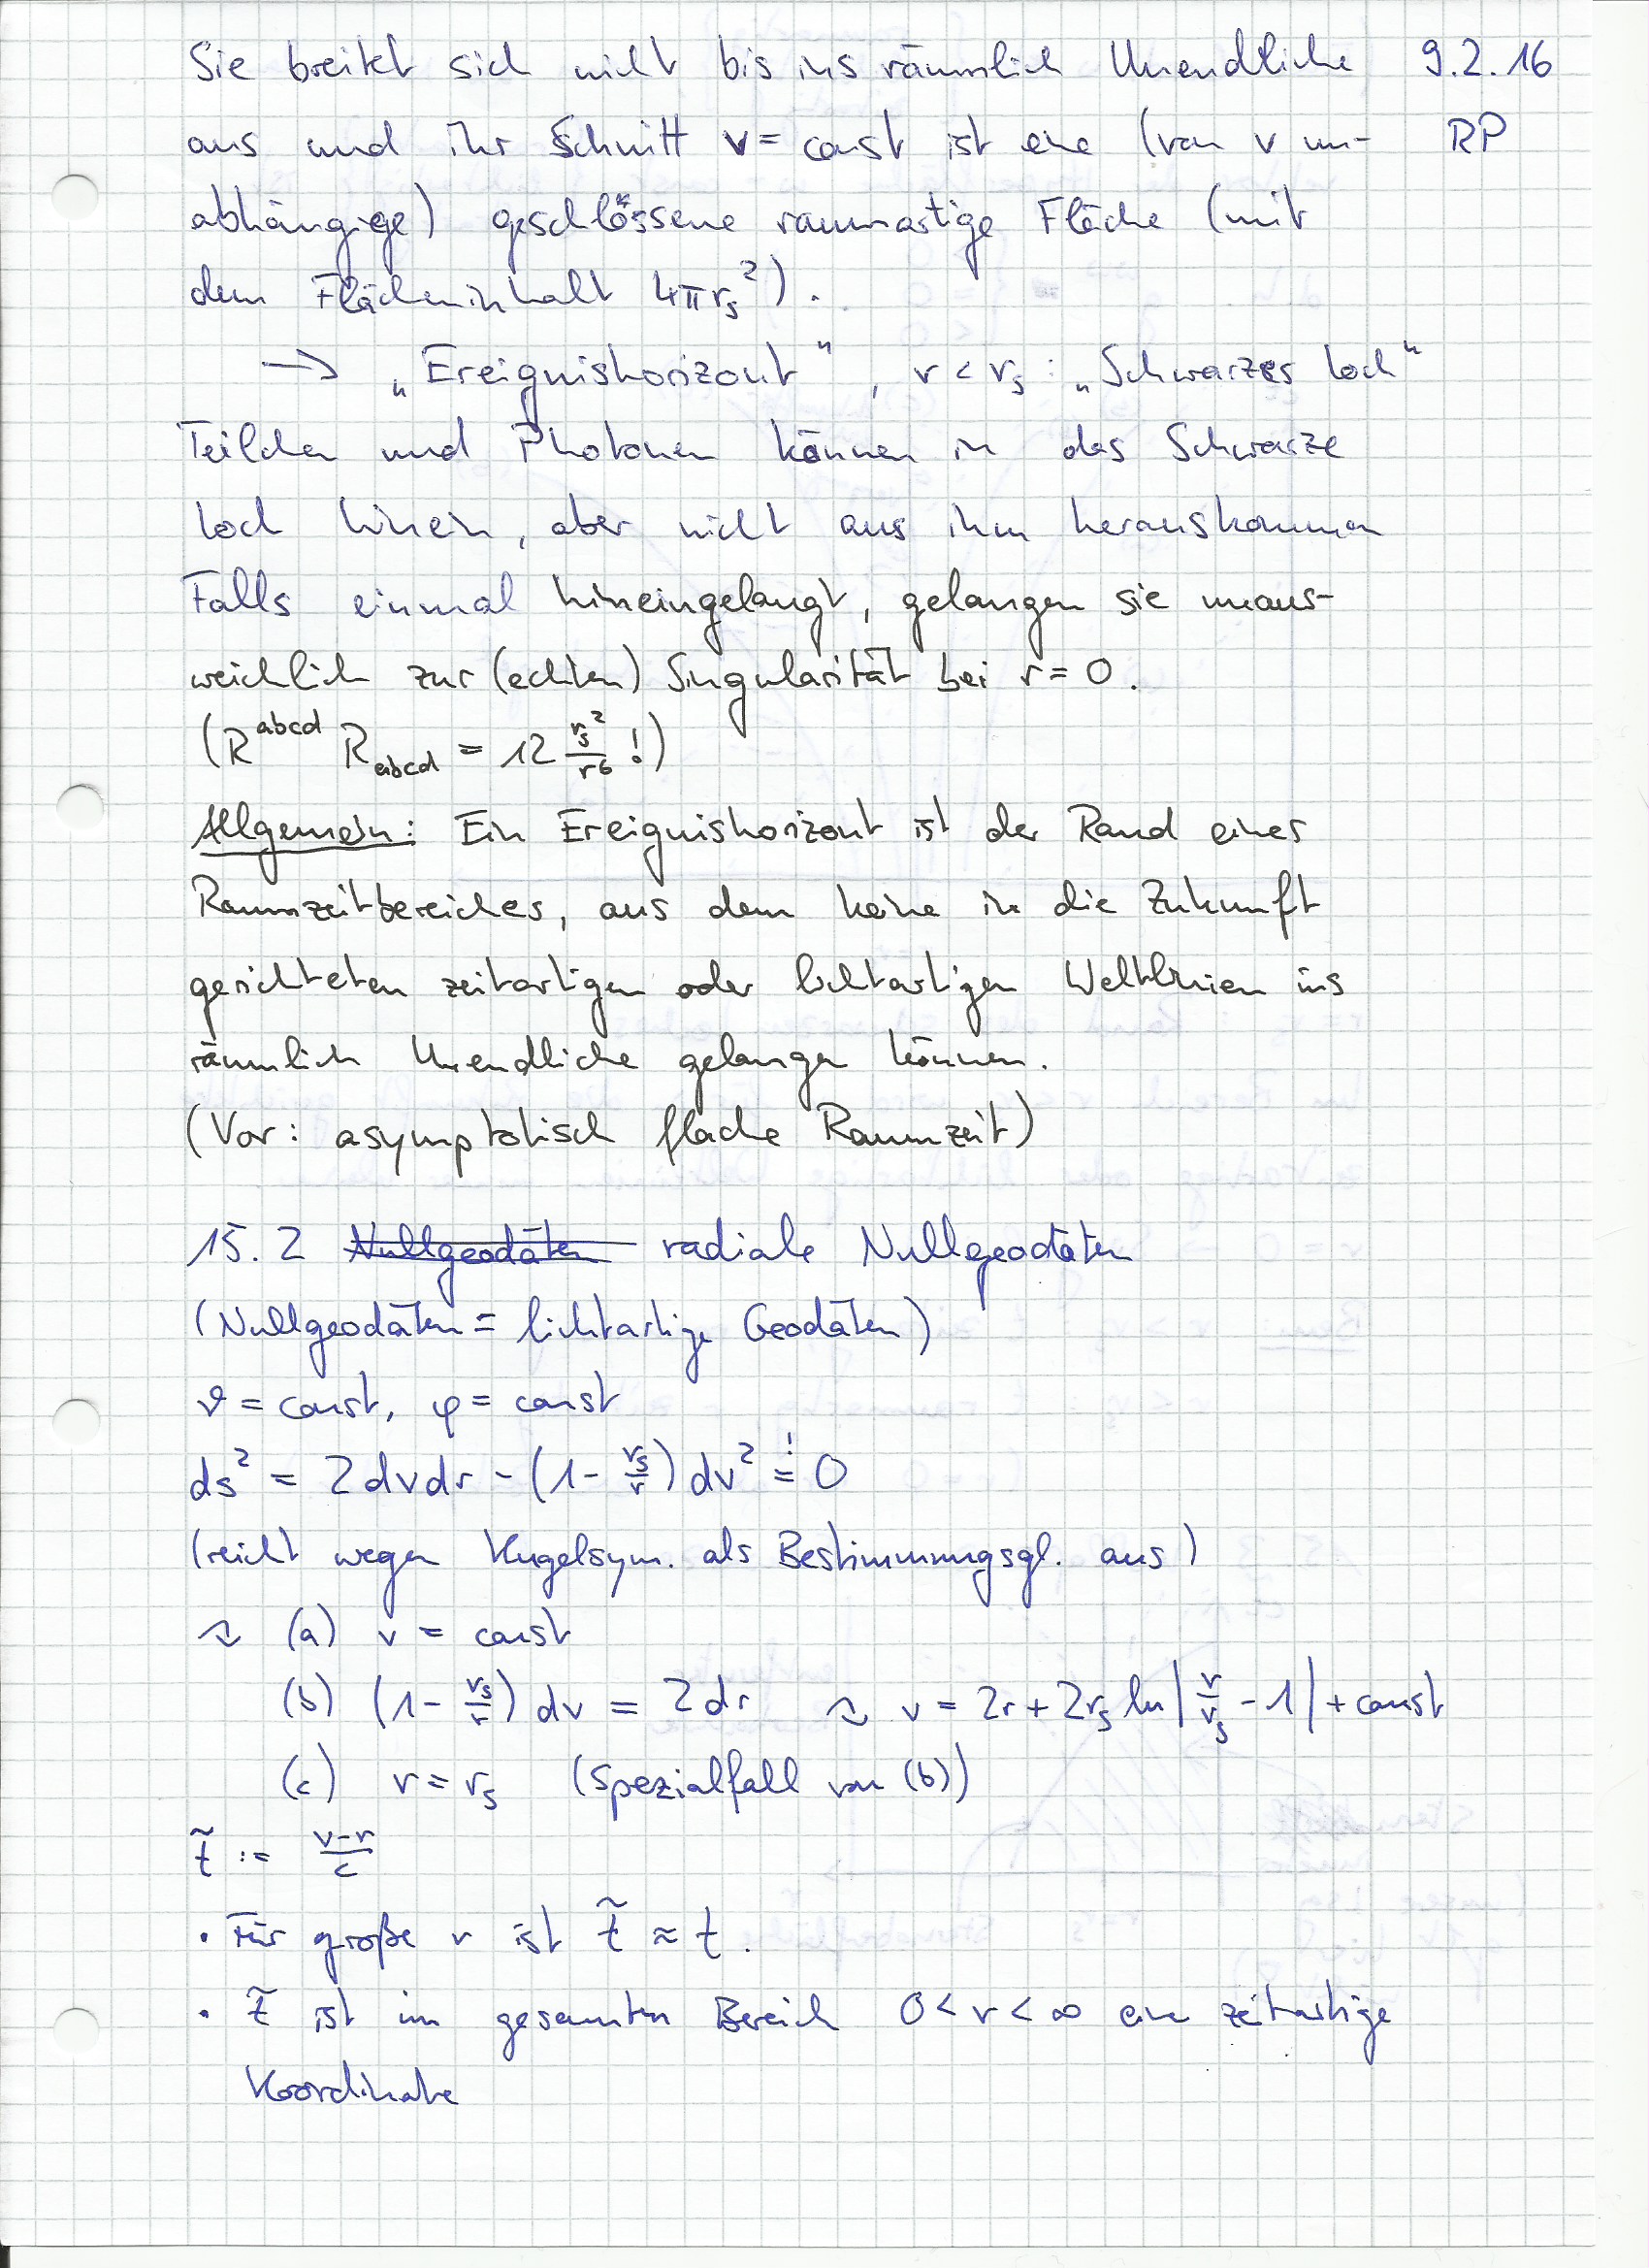 Sie breitet sich nicht bis ins räumlich Unendliche 9.2.16
aus und ihr Schnitt v = const ist eine (von v un- RP
abhängige) geschlossene raumartige Fläche (mit
dem Flächeninhalt 4πr_s²).
→ „Ereignishorizont“, r < r_s: „Schwarzes Loch“
Teilchen und Photonen können in das Schwarze
Loch hinein, aber nicht aus ihm herauskommen
Falls einmal hineingelangt, gelangen sie unaus-
weichlich zur (echten) Singularität bei r = 0.
(R^{abcd} R_{abcd} = 12 r_s²/r⁶ !)
Allgemein: Ein Ereignishorizont ist der Rand eines
Raumzeitbereiches, aus dem keine in die Zukunft
gerichteten zeitartigen oder lichtartigen Weltlinien ins
räumlich Unendliche gelangen können.
(Vor: asymptotisch flache Raumzeit)
15.2 Nullgeodäten radiale Nullgeodäten
(Nullgeodäten = lichtartige Geodäten)
ϑ = const, φ = const
ds² = 2dvdr - (1 - r_s/r) dv² =! 0
(reicht wegen Kugelsym. als Bestimmungsgl. aus)
↝ (a) v = const
(b) (1 - r_s/r) dv = 2dr ↝ v = 2r + 2r_s ln|r/r_s - 1| + const
(c) r = r_s (Spezialfall von (b))
t̃ := (v-r)/c
• Für große r ist t̃ ≈ t.
• t̃ ist im gesamten Bereich 0 < r < ∞ eine zeitartige
Koordinate